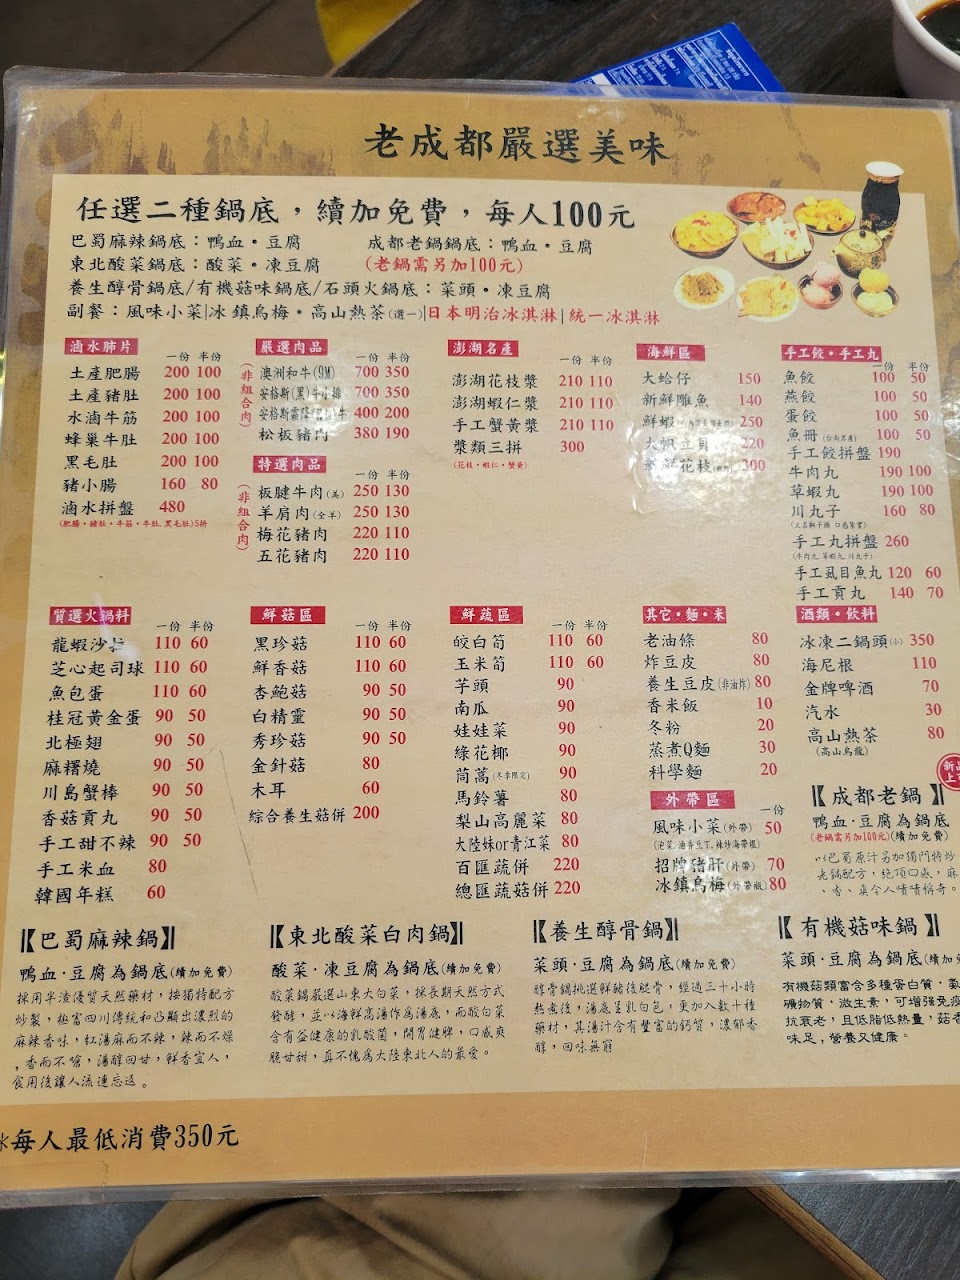 老成都嚴選美味
任選二種鍋底，續加免費，每人100元
巴蜀麻辣鍋底：鴨血・豆腐 成都老鍋鍋底：鴨血・豆腐
東北酸菜鍋底：酸菜・凍豆腐 (老鍋需另加100元)
養生醇骨鍋底/有機菇味鍋底/石頭火鍋底：菜頭・凍豆腐
副餐：風味小菜|冰鎮烏梅・高山熱茶(選一)|日本明治冰淇淋|統一冰淇淋
滷水肺片
一份 半份
土產肥腸 200 100
土產豬肚 200 100
水滷牛筋 200 100
蜂巢牛肚 200 100
黑毛肚 200 100
豬小腸 160 80
滷水拼盤 480
(肥腸・豬肚・牛筋・牛肚.黑毛肚)5拼
嚴選肉品
一份 半份
(非組合肉)
澳洲和牛(9M) 700 350
安格斯(黑)牛小排 700 350
安格斯霜降 牛 400 200
松板豬肉 380 190
特選肉品
一份 半份
(非組合肉)
板腱牛肉(美) 250 130
羊肩肉(全羊) 250 130
梅花豬肉 220 110
五花豬肉 220 110
澎湖名產
一份 半份
澎湖花枝漿 210 110
澎湖蝦仁漿 210 110
手工蟹黃漿 210 110
漿類三拼 300
(花枝・蝦仁・蟹黃)
海鮮區
大蛤仔 150
新鮮雕魚 140
鮮蝦 250
大帆立貝 220
花枝 300
手工餃・手工丸
一份 半份
魚餃 100 50
燕餃 100 50
蛋餃 100 50
魚冊(台南名產) 100 50
手工餃拼盤 190
牛肉丸 190 100
草蝦丸 190 100
川丸子 160 80
(又名獅子頭 口感紮實)
手工丸拼盤 260
(牛肉丸.草蝦丸.川丸子)
手工虱目魚丸 120 60
手工貢丸 140 70
質選火鍋料
一份 半份
龍蝦沙拉 110 60
芝心起司球 110 60
魚包蛋 110 60
桂冠黃金蛋 90 50
北極翅 90 50
麻糬燒 90 50
川島蟹棒 90 50
香菇貢丸 90 50
手工甜不辣 90 50
手工米血 80
韓國年糕 60
鮮菇區
一份 半份
黑珍菇 110 60
鮮香菇 110 60
杏鮑菇 90 50
白精靈 90 50
秀珍菇 90 50
金針菇 80
木耳 60
綜合養生菇併 200
鮮蔬區
一份 半份
皎白筍 110 60
玉米筍 110 60
芋頭 90
南瓜 90
娃娃菜 90
綠花椰 90
茼蒿(冬季限定) 90
馬鈴薯 80
梨山高麗菜 80
大陸妹or青江菜 80
百匯蔬併 220
總匯蔬菇併 220
其它・麵・米
老油條 80
炸豆皮 80
養生豆皮(非油炸) 80
香米飯 10
冬粉 20
蒸煮Q麵 30
科學麵 20
外帶區
一份
風味小菜(外帶) 50
招牌豬肝(外帶) 70
冰鎮烏梅(外帶瓶) 80
酒類・飲料
冰凍二鍋頭(小) 350
海尼根 110
金牌啤酒 70
汽水 30
高山熱茶 80
(高山烏龍)
【成都老鍋】
鴨血・豆腐為鍋底
(老鍋需另加100元)(續加免費)
以巴蜀原汁另加獨門特炒
老鍋配方，絕頂口感，麻
、香、臭令人嘖嘖稱奇。
【巴蜀麻辣鍋】
鴨血・豆腐為鍋底(續加免費)
採用半渣優質天然藥材，按獨特配方
炒製，極富四川傳統和凸顯出濃烈的
麻辣香味，紅湯麻而不辣，辣而不燥
，香而不嗆，湯醇回甘，鮮香宜人，
食用後讓人流連忘返。
【東北酸菜白肉鍋】
酸菜・凍豆腐為鍋底(續加免費)
酸菜鍋嚴選山東大白菜，採長期天然方式
發酵，並以海鮮高湯作為湯底，而酸白菜
含有益健康的乳酸菌，開胃健脾，口感爽
脆甘甜，真不愧為大陸東北人的最愛。
【養生醇骨鍋】
菜頭・豆腐為鍋底(續加免費)
醇骨鍋挑選鮮豬後腿骨，經過三十小時
熬煮後，湯底呈乳白色，更加入數十種
藥材，其湯汁含有豐富的鈣質，濃郁香
醇，回味無窮
【有機菇味鍋】
菜頭・豆腐為鍋底(續加免
有機菇類富含多種蛋白質，氨
礦物質，微生素，可增強免疫
抗衰老，且低脂低熱量，菇香
味足，營養又健康。
※每人最低消費350元